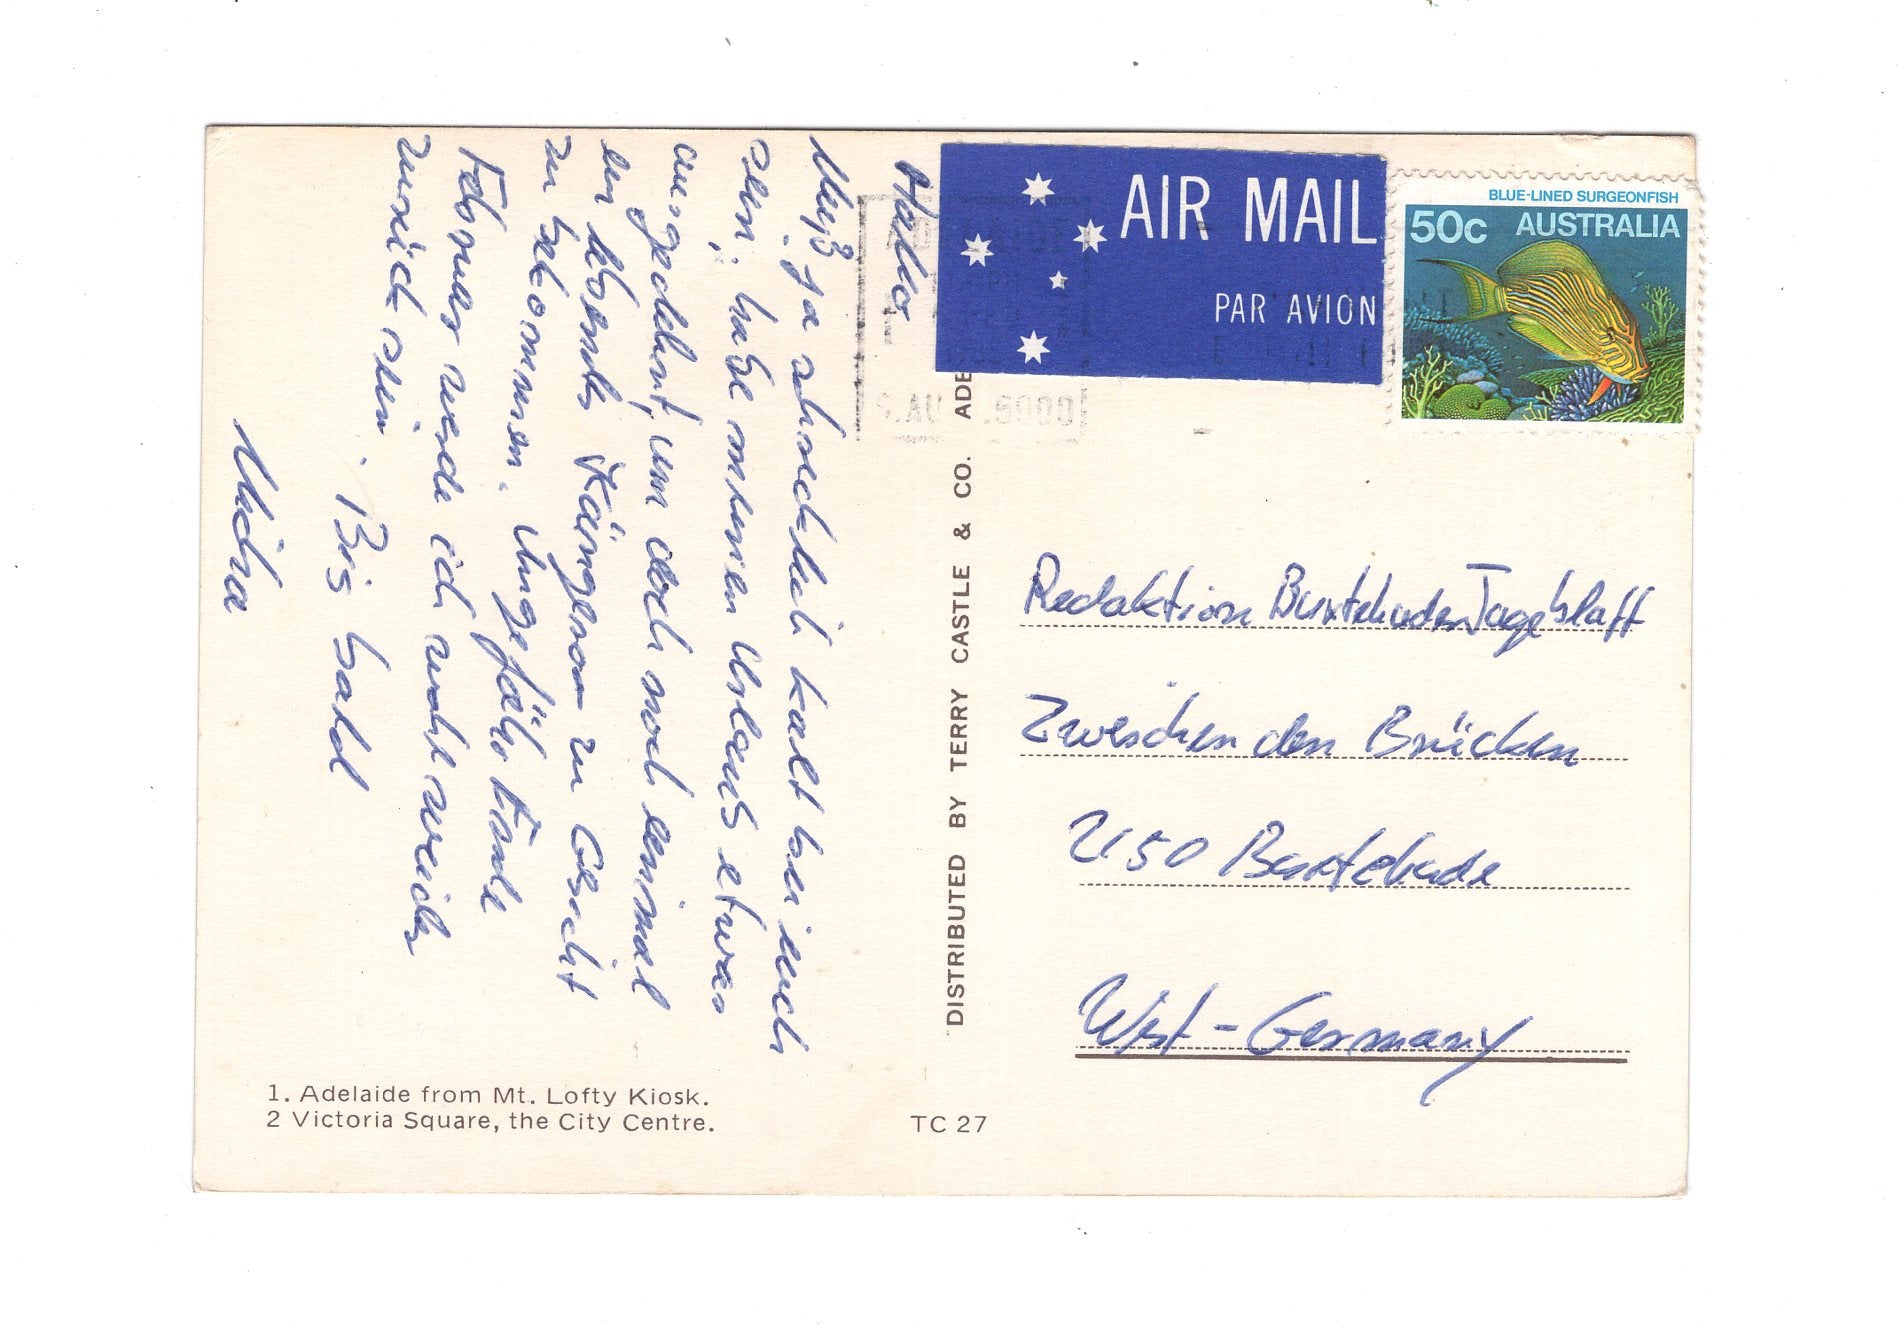 Hallo
Muß ja schrecklich kalt bei euch
sein. habe meinen Urlaub etwas
ausgedehnt, um doch noch einmal
ein lebends Känguru zu Gesicht
zu bekommen. Ungefähr Ende
Februar werde ich wohl wieder
zurück sein. Bis bald
AIR MAIL
PAR AVION
BLUE-LINED SURGEONFISH
50c AUSTRALIA
DISTRIBUTED BY TERRY CASTLE & CO. ADE
Redaktion Buxtehuder Tageblatt
Zwischen den Brücken
2150 Buxtehude
West-Germany
1. Adelaide from Mt. Lofty Kiosk.
2 Victoria Square, the City Centre.
TC 27